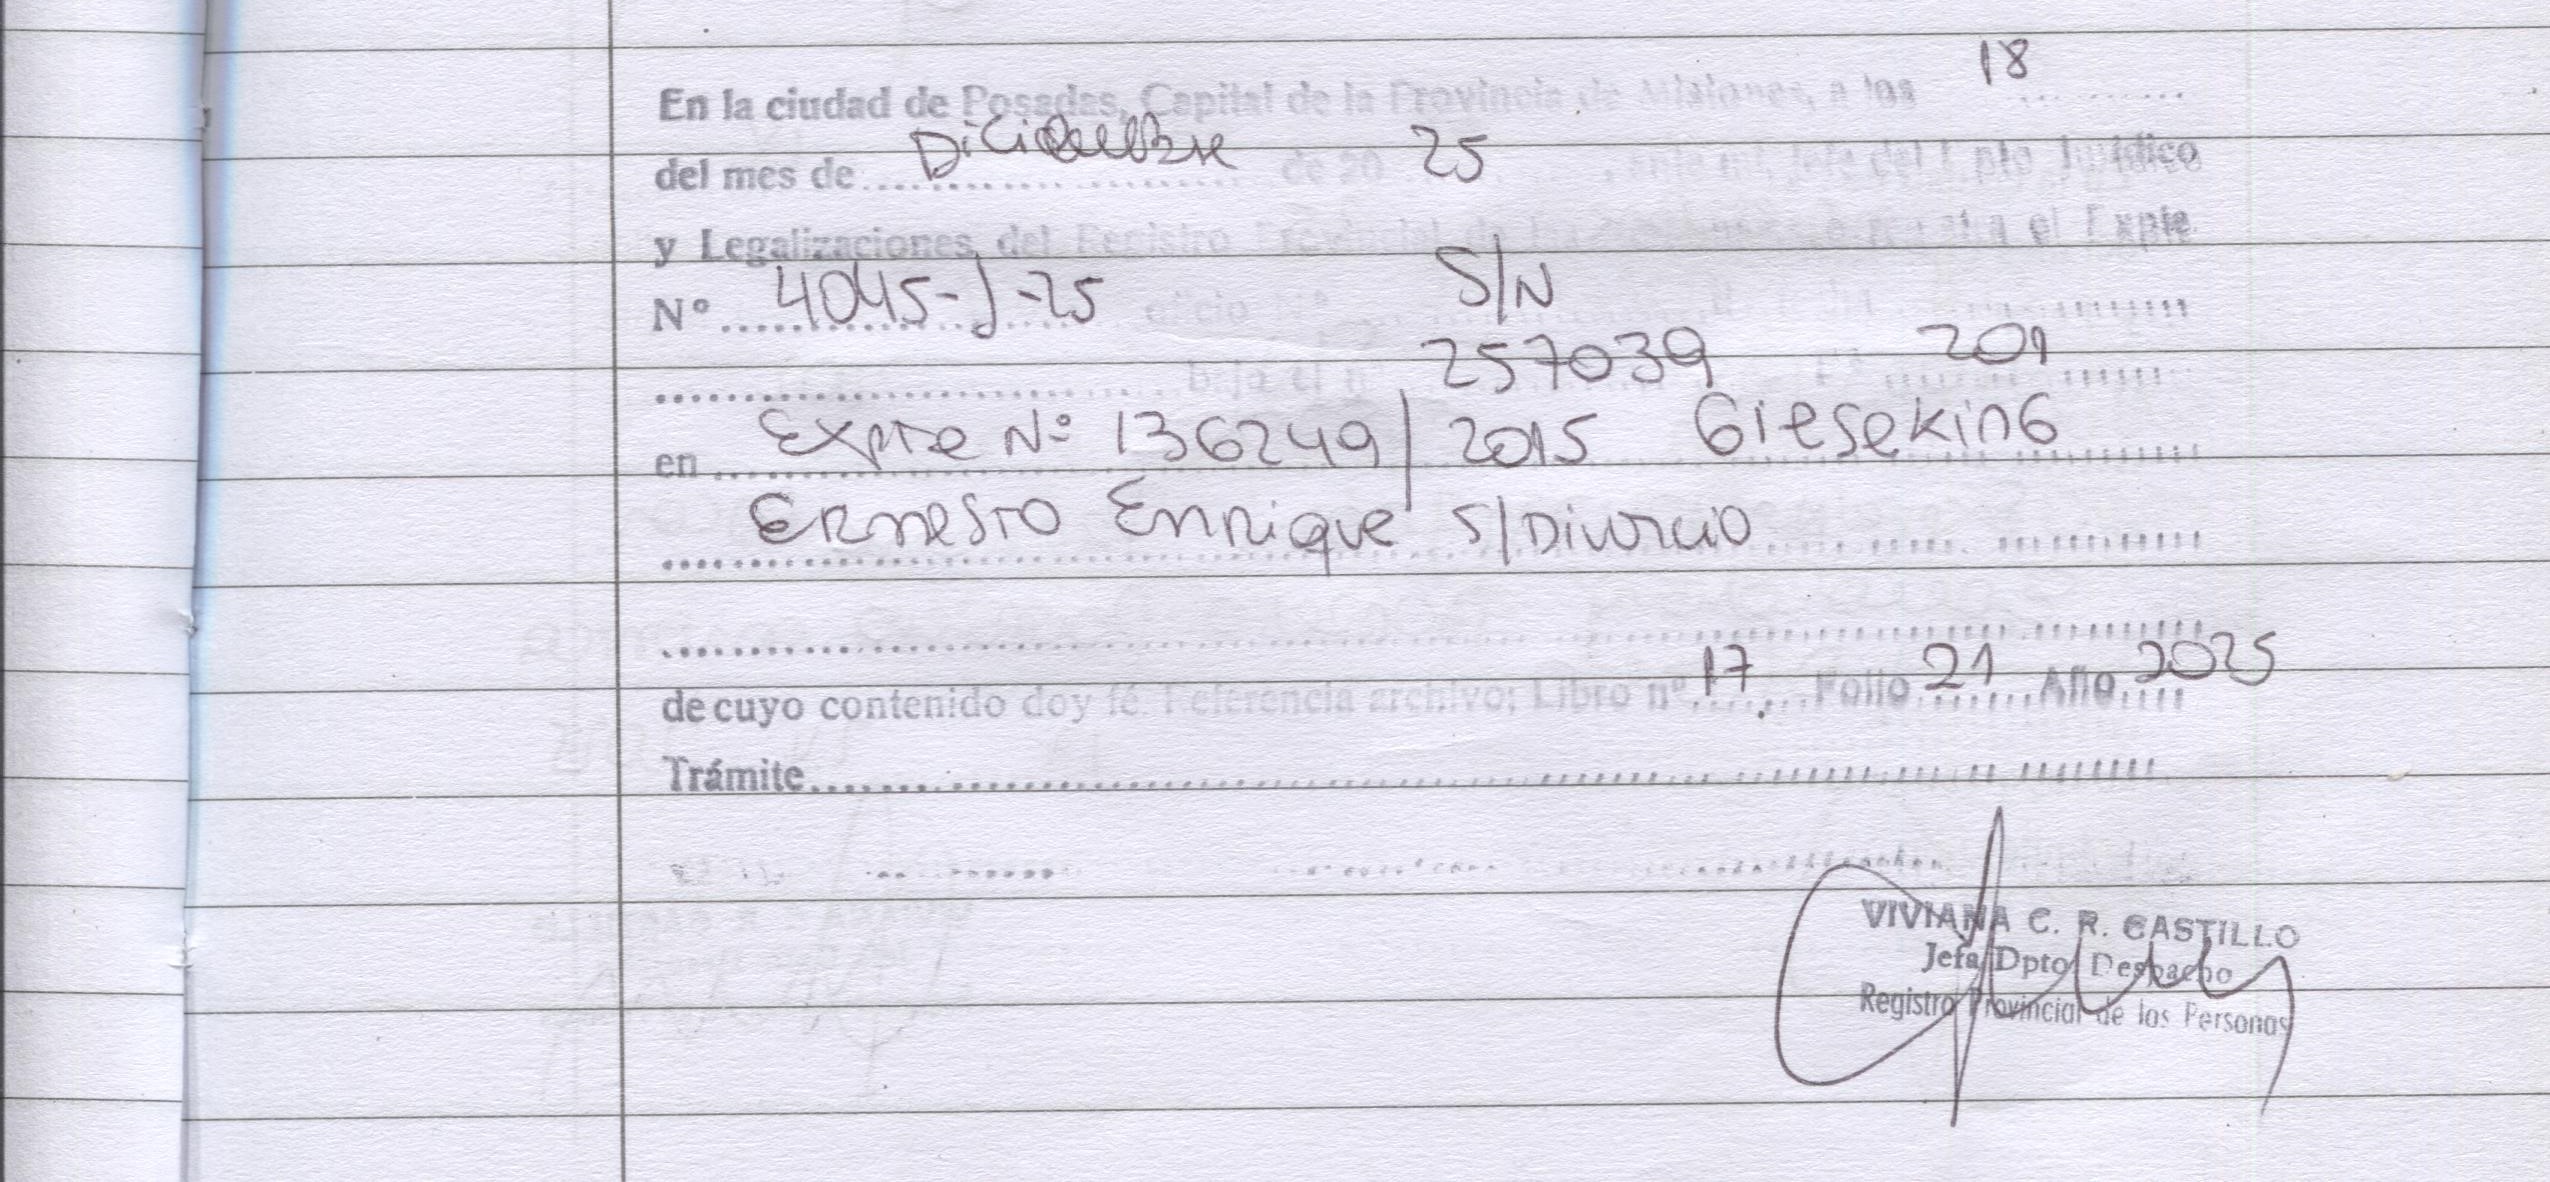 En la ciudad de Posadas, Capital de la Provincia de Misiones, a los 18
del mes de Diciembre de 20 25, ante mi, Jefe del Dpto Jurídico
y Legalizaciones del Registro Provincial de las el Expte
Nº 4045-J-25 oficio nº S/N
bajo el nº 257039 Fº 201
en Expte Nº 136249/2015 Gieseking
Ernesto Enrique S/Divorcio
de cuyo contenido doy fé. Referencia archivo; Libro nº 17 Folio 21 Año 2025
Trámite
VIVIANA C. R. CASTILLO
Jefa Dpto Despacho
Registro Provincial de las Personas